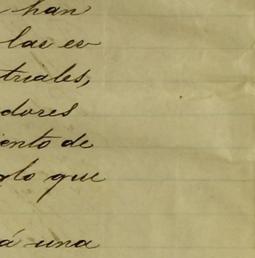 han
lae en
triales,
dores
iento de
rlo que
á una